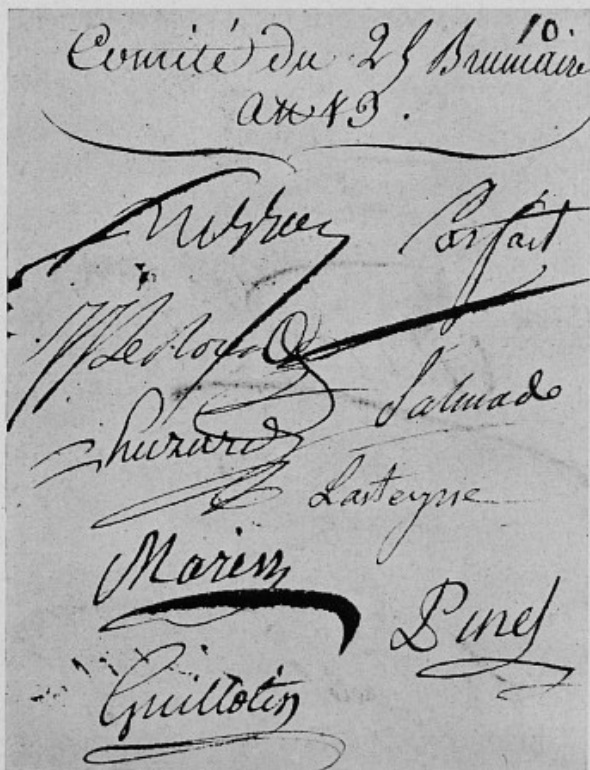 10
Comité du 25 Brumaire
an 13.
Parfait
J J Leroux
Salmade
huzard
Lasteyrie
Marin
Pinel
Guillotin